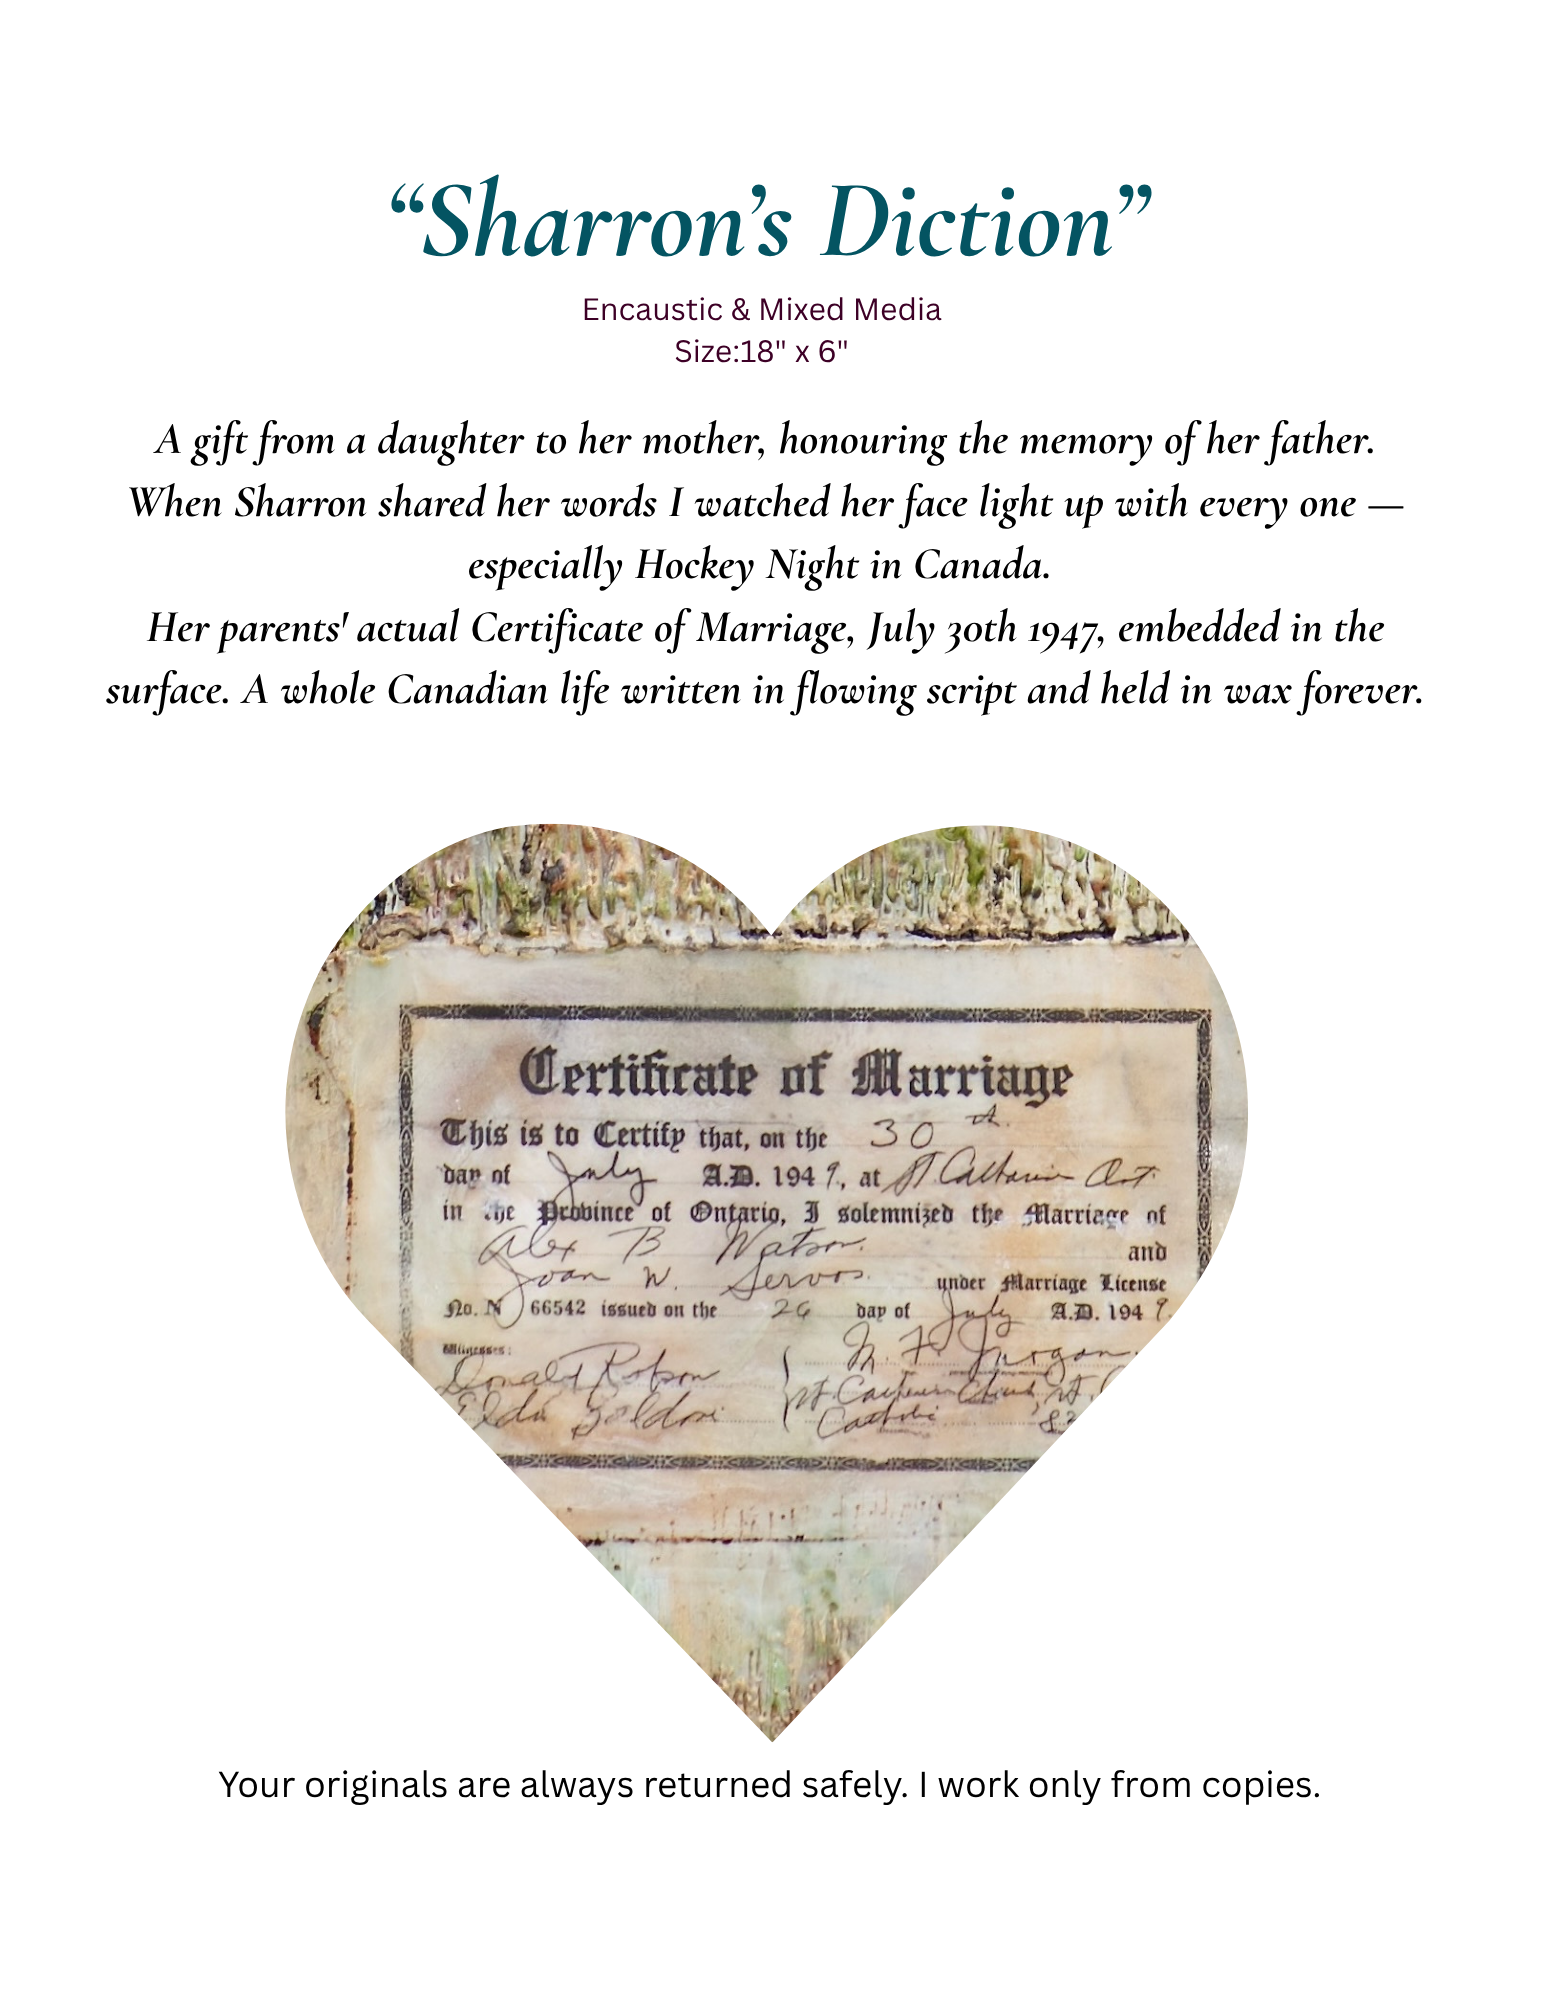 “Sharron’s Diction”
Encaustic & Mixed Media
Size:18" x 6"
A gift from a daughter to her mother, honouring the memory of her father.
When Sharron shared her words I watched her face light up with every one —
especially Hockey Night in Canada.
Her parents' actual Certificate of Marriage, July 30th 1947, embedded in the
surface. A whole Canadian life written in flowing script and held in wax forever.
Certificate of Marriage
This is to Certify that, on the 30th
day of July A.D. 1949, at St. Catharines Ont.
in the Province of Ontario, I solemnized the Marriage of
Alex B Watson. and
Joan W. Servos. under Marriage License
No. N 66542 issued on the 26 day of July A.D. 1949.
Witnesses:
Donald Robson
M. F.
Elda
Catholic
Your originals are always returned safely. I work only from copies.